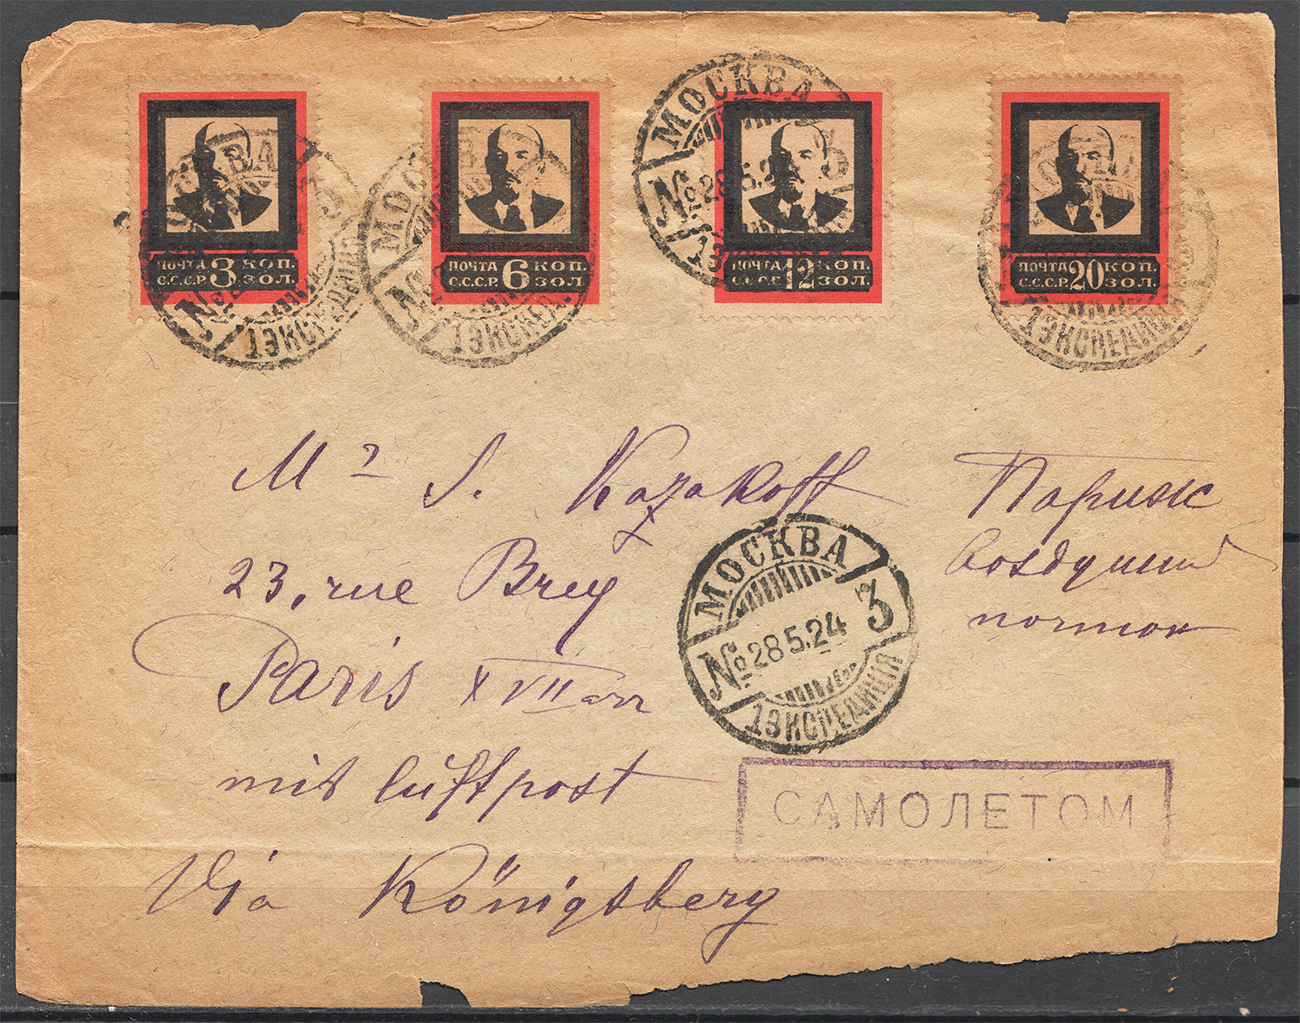 ПОЧТА 3 КОП.
С.С.С.Р. ЗОЛ.
ПОЧТА 6 КОП.
С.С.С.Р. ЗОЛ.
ПОЧТА 12 КОП.
С.С.С.Р. ЗОЛ.
ПОЧТА 20 КОП.
С.С.С.Р. ЗОЛ.
МОСКВА 3
№ 28.5.2
1 ЭКСПЕДИЦІЯ
Mr S. Kazakoff
23, rue Brey
Paris XVII arr
mit Luftpost
Via Königsberg
Париж
воздушной
почтой
МОСКВА 3
№ 28.5.24
1 ЭКСПЕДИЦІЯ
САМОЛЕТОМ